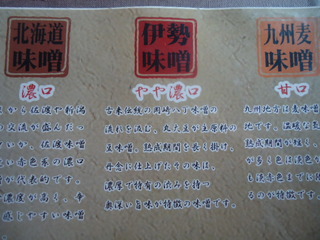 北海道
味噌
濃口
から佐渡や新潟
交流が盛んだっ
いか、佐渡味噌
い赤色系の濃口
が代表的です。
濃度が高く、辛
感じやすい味噌
伊勢
味噌
やや濃口
古来伝統の岡崎八丁味噌の
流れを汲む、丸大豆が主原料の
豆味噌。熟成期間を長く掛け、
丹念に仕上げたその味は、
濃厚で特有の渋みを持つ
奥深い旨味が特徴の味噌です。
九州麦
味噌
甘口
九州地方は麦味噌
地です。温暖な気
熟成期間が短く、
が多く色は淡色か
も淡赤色までに仕
るのが特徴です。